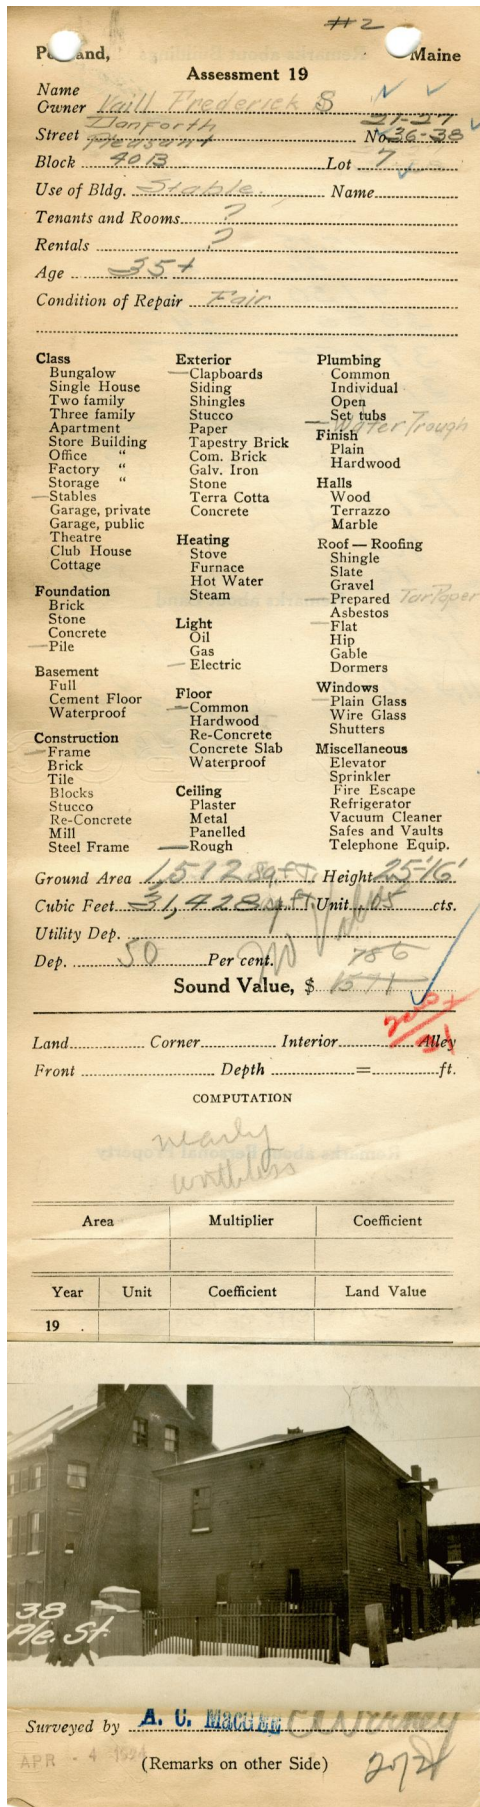 #2
Portland, Maine
Assessment 19
Name
Owner Vaill Frederick S
Danforth 21-27
Street Pleasant No. 36-38
Block 40B Lot 7
Use of Bldg. Stable Name
Tenants and Rooms ?
Rentals ?
Age 35+
Condition of Repair Fair
Class
Bungalow
Single House
Two family
Three family
Apartment
Store Building
Office "
Factory "
Storage "
Stables
Garage, private
Garage, public
Theatre
Club House
Cottage
Foundation
Brick
Stone
Concrete
Pile
Basement
Full
Cement Floor
Waterproof
Construction
Frame
Brick
Tile
Blocks
Stucco
Re-Concrete
Mill
Steel Frame
Exterior
Clapboards
Siding
Shingles
Stucco
Paper
Tapestry Brick
Com. Brick
Galv. Iron
Stone
Terra Cotta
Concrete
Heating
Stove
Furnace
Hot Water
Steam
Light
Oil
Gas
Electric
Floor
Common
Hardwood
Re-Concrete
Concrete Slab
Waterproof
Ceiling
Plaster
Metal
Panelled
Rough
Plumbing
Common
Individual
Open
Set tubs
Water Trough
Finish
Plain
Hardwood
Halls
Wood
Terrazzo
Marble
Roof — Roofing
Shingle
Slate
Gravel
Prepared Tar Paper
Asbestos
Flat
Hip
Gable
Dormers
Windows
Plain Glass
Wire Glass
Shutters
Miscellaneous
Elevator
Sprinkler
Fire Escape
Refrigerator
Vacuum Cleaner
Safes and Vaults
Telephone Equip.
Ground Area 1,512 sq ft. Height 25'-16'
Cubic Feet 31,428 sq ft Unit .05 cts.
Utility Dep.
No Value
Dep. 50 Per cent. 786
Sound Value, $ 1571
Land Corner Interior Alley
Front Depth = ft.
COMPUTATION
nearly
worthless
Area Multiplier Coefficient
Year Unit Coefficient Land Value
19
38
Ple. St.
Surveyed by A. C. MacGEE
APR - 4 1924
(Remarks on other Side)